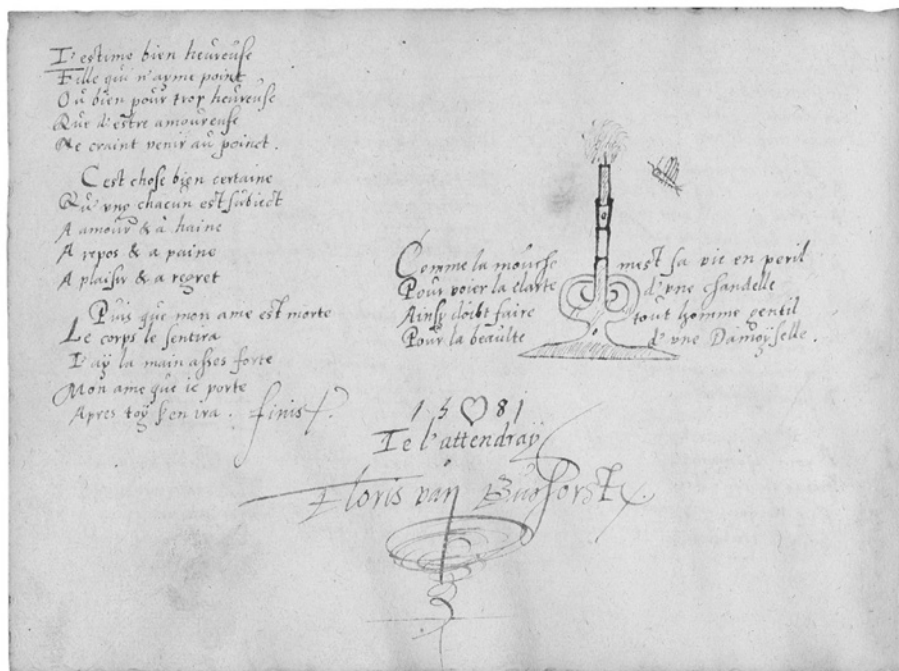 I'estime bien heureuse
Fille qui n'ayme point
Ou bien pour trop heureuse
Que d'estre amoureuse
Ne craint venir au poinct.
C'est chose bien certaine
Qu'vng chacun est subiect
A amour & à haine
A repos & a paine
A plaisir & a regret
Puis que mon ame est morte
Le corps le sentira
I'aÿ la main asses forte
Mon ame que ie porte
Apres toÿ s'en ira. finis.
Comme la mouche mest sa vie en peril
Pour voier la clarte d'vne chandelle
Ainsy doibt faire tout homme gentil
Pour la beaulte d'vne Damoÿselle.
15 81
Ie l'attendraÿ
Floris van